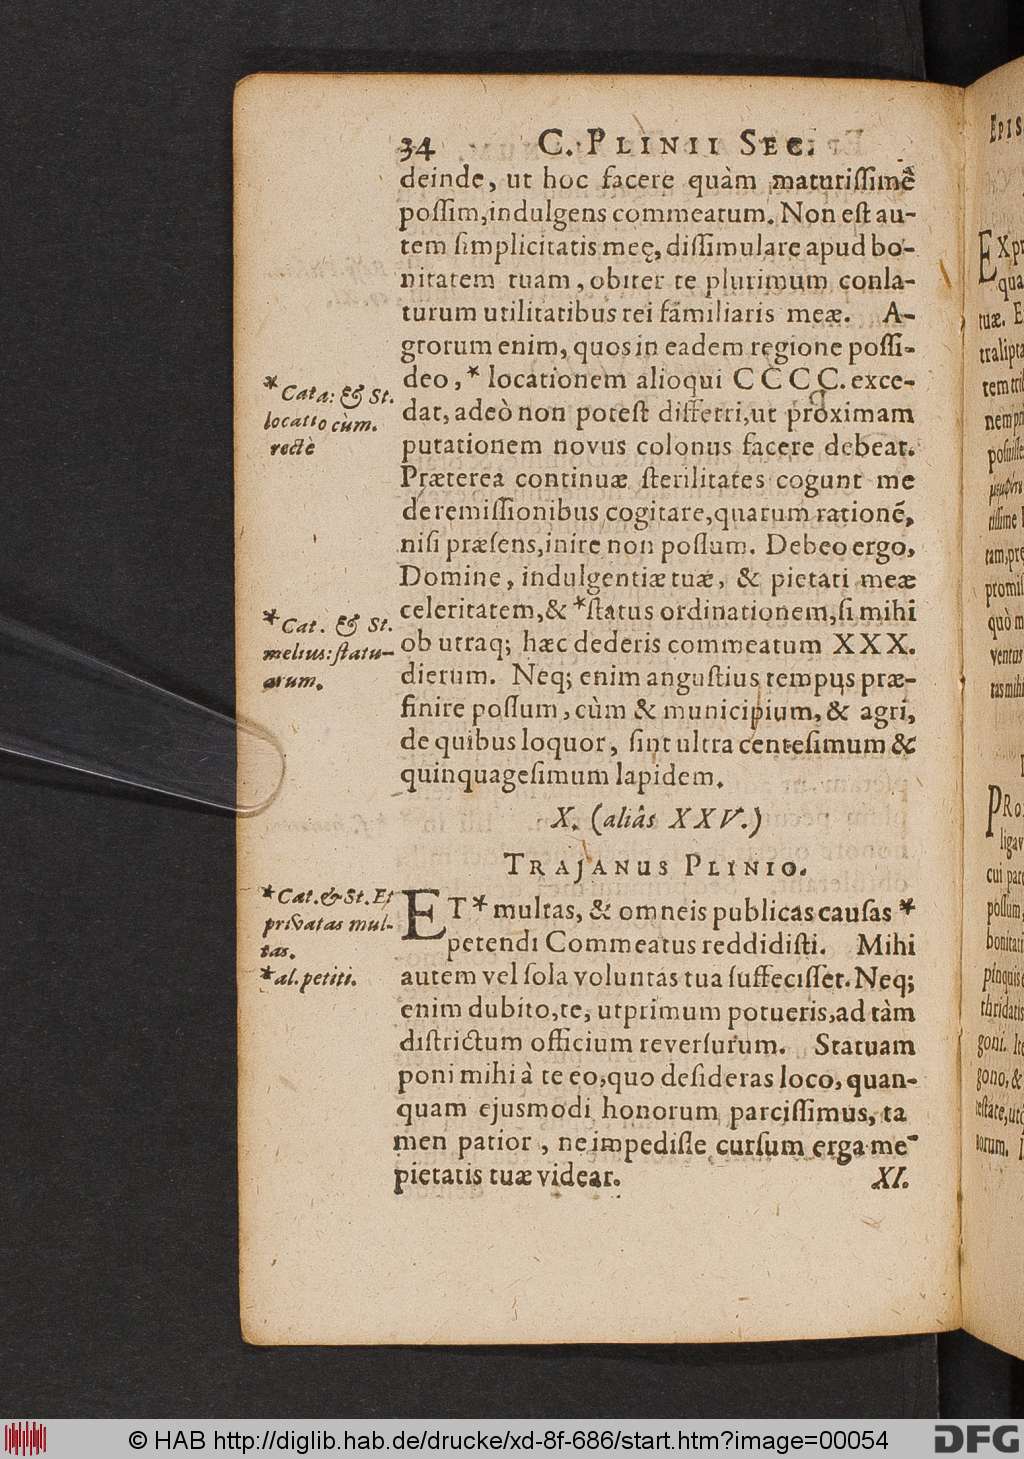 34 C. PLINII SEC.
deinde, ut hoc facere quàm maturissimè
possim, indulgens commeatum. Non est au-
tem simplicitatis meę, dissimulare apud bo-
nitatem tuam, obiter te plurimum conla-
turum utilitatibus rei familiaris meæ. A-
grorum enim, quos in eadem regione possi-
deo, * locationem alioqui CCCC. exce-
dat, adeò non potest differri, ut proximam
putationem novus colonus facere debeat.
Præterea continuæ sterilitates cogunt me
de remissionibus cogitare, quarum rationē,
nisi præsens, inire non possum. Debeo ergo,
Domine, indulgentiæ tuæ, & pietati meæ
celeritatem, & *status ordinationem, si mihi
ob utraq; hæc dederis commeatum XXX.
dierum. Neq; enim angustius tempus præ-
finire possum, cùm & municipium, & agri,
de quibus loquor, sint ultra centesimum &
quinquagesimum lapidem.
* Cata: & St.
locatio cùm.
rectè
* Cat. & St.
melius: statu-
arum.
X. (aliâs XXV.)
TRAJANUS PLINIO.
ET * multas, & omneis publicas causas *
petendi Commeatus reddidisti. Mihi
autem vel sola voluntas tua suffecisset. Neq;
enim dubito, te, ut primum potueris, ad tàm
districtum officium reversurum. Statuam
poni mihi à te eo, quo desideras loco, quan-
quam ejusmodi honorum parcissimus, ta
men patior, ne impedisse cursum erga me
pietatis tuæ videar.
XI.
* Cat. & St. Et
privatas mul-
tas.
* al. petiti.
EPIS
EXpr
qua
tuæ. E
tralipta
nem pr
PRO
ligav
cui par
possum,
bonitati
thridatis
goni. Ite
gono, &
© HAB http://diglib.hab.de/drucke/xd-8f-686/start.htm?image=00054
DFG